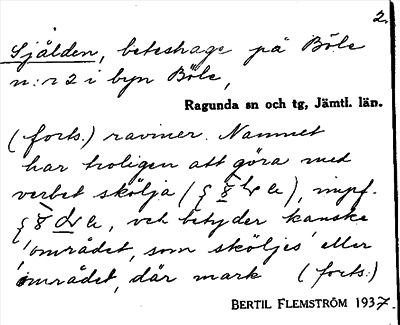 2.
Själden, beteshage på Böle
n:r 2 i byn Böle,
Ragunda sn och tg, Jämtl. län.
(forts.) raviner. Namnet
har troligen att göra med
verbet skölja, impf.
och betyder kanske
'området, som sköljes' eller
'området, där mark (forts.)
BERTIL FLEMSTRÖM 1937.